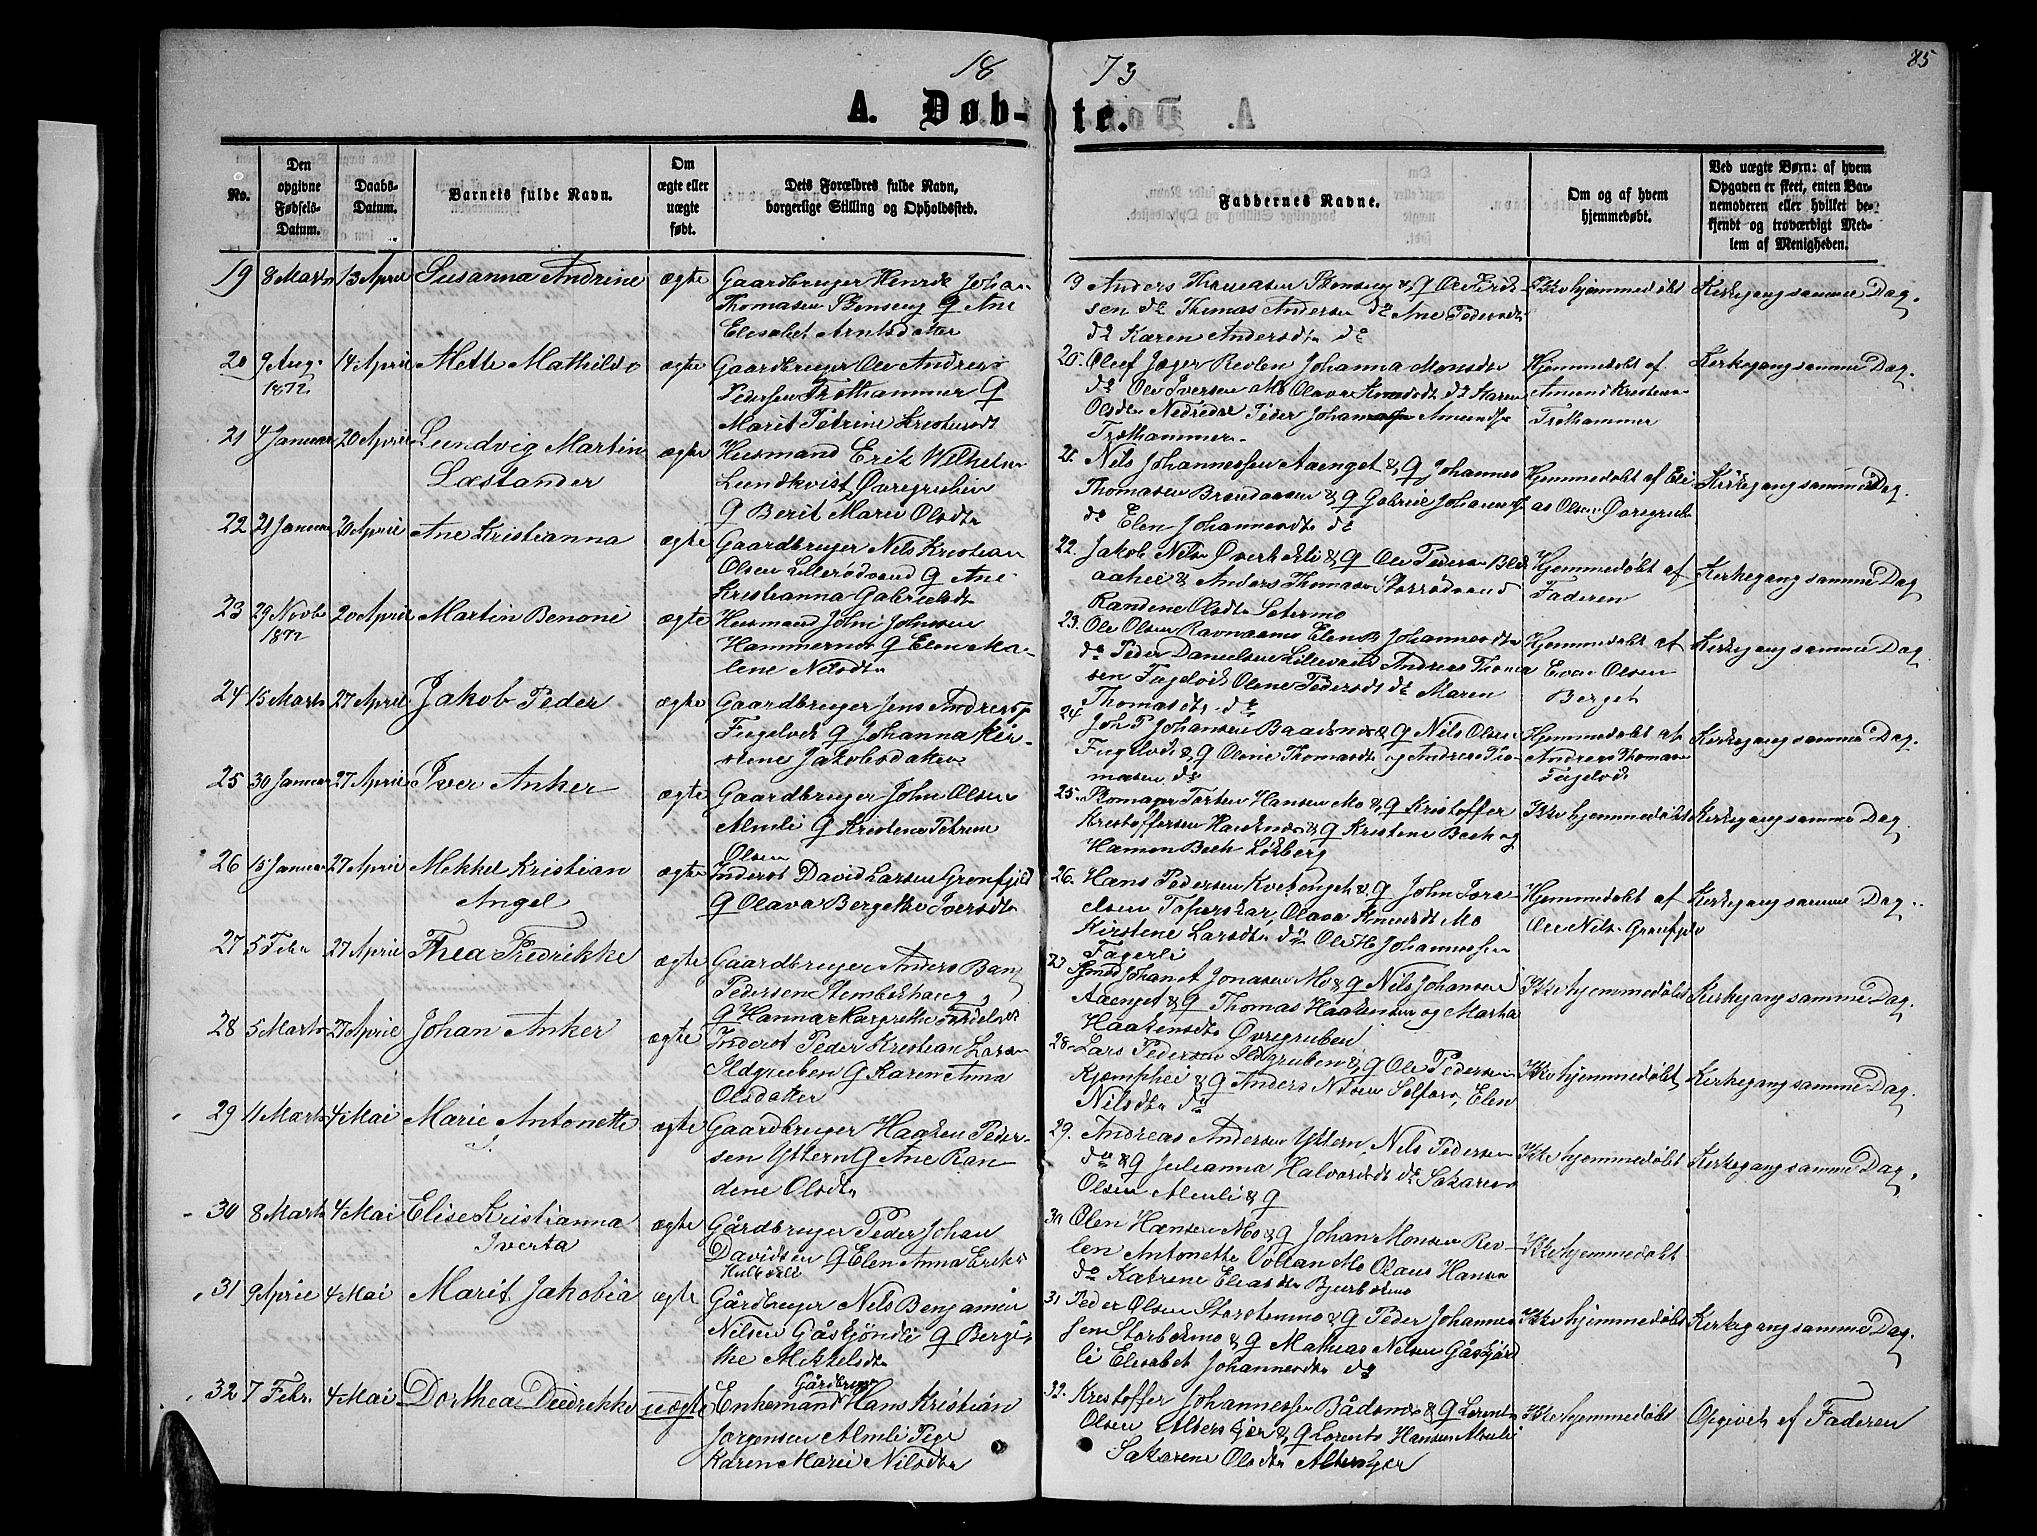 18 73
85
A. Døb-te.
No.
Den opgivne Fødsels-Datum.
Daabs-Datum.
Barnets fulde Navn.
Om ægte eller uægte født.
Dets Forældres fulde Navn, borgerlige Stilling og Opholdssted.
Faddernes Navne.
Om og af hvem hjemmedøbt.
Ved uægte Børn: af hvem Opgaven er skeet, enten Barnemoderen eller hvilket bekjendt og troværdigt Medlem af Menigheden.
19 8 Marts 13 April Susanna Andrine ægte Gaardbruger Henrik Joha-
Thomasen Stenseng & Ane
Elisabet Arntsdatter
19 Anders Thomasen Stenseng & G
sen do Thomas Andersen do Ane Pedersdt
do Karen Andersdtr do
Ikke hjemmedøbt Kirkegang samme Dag.
20 9 Aug. 1872. 14 April Mette Mathilde ægte Gaardbruger Ole Andreas
Pedersen Trothammer G
Marit Petrine Kristensdt
20. Oluf Jæger Revlen Johanna Monsdtr
do Ole Iversen Mo Olava Amundsdt do Karen
Olsdtr Nedredal Peder Johan Amundsen
Trothammer.
Hjemmedøbt af
Amund Kristensen
Trothammer
Kirkegang samme Dag.
21 4 Januar 20 April Lundvig Martin
Læstander
ægte Husmand Erik Wilhelm
Lundkvist, Øvregruben
G Berit Marie Olsdtr
21. Nils Johannessen Aaenget & G Johannes
Thomasen Brændaasen & G Gabriel Johannes
do Elen Johannesdtr do
Hjemmedøbt af Eli-
as Olsen Øvregrub
Kirkegang samme Dag.
22 21 Januar 20 April Ane Kristianna ægte Gaardbruger Nils Kristian
Olsen Lillerødvand G Ane
Kristianna Gabrielsdt
22. Jakob Nilsen Øverbekli & G Ole Pedersen Blek
aahei & Anders Thomasen Storrødvand
Randine Olsdtr Setermo
Hjemmedøbt af
Faderen
Kirkegang samme Dag
23 29 Novb. 1872 20 April Martin Benoni ægte Husmand John Johnsen
Hammernes G Elen Ma-
lene Nilsdtr
23. Ole Olsen Ravnaamo Elen Johannesdtr
do Peder Danielsen Lillevand Andreas Thoma
sen Fugelvik Oline Pedersdt do Maren
Thomasdtr do
Hjemmedøbt af
Even Olsen
Berget
Kirkegang samme Dag.
24 15 Marts 27 April Jakob Peder ægte Gaardbruger Jens Andreas
Fugelvik G Johanna Kir-
stine Jakobsdatter
24 Joh. P. Johansen Baadsnes & G Nils Olsen
Fugelvik & G Oline Thomasdtr og Andreas Tho-
masen do
Hjemmedøbt af
Andreas Thomasen
Fugelvik
Kirkegang samme Dag.
25 30 Januar 27 April Iver Anker ægte Gaardbruger John Olsen
Almli G Kristine Petrine
Olsen
25. Romager Torsten Hansen Mo & G Kristoffer
Kristoffersen Hauknes & G Kristine Bech og
Hamon Bech Løkberg
Ikke hjemmedøbt Kirkegang samme Dag.
26 15 Januar 27 April Mikkel Kristian
Angel
ægte Inderst David Larsen Grønfjeld
G Olava Bergette Iversdtr
26. Hans Pedersen Kvebenget & G John Isra-
elsen Toperskar, Olava Knudsdt Mo
Kirstine Larsdtr do Ole H Johannessen
Fagerli
Hjemmedøbt af
Ole Nils. Grønfjeld
Kirkegang samme Dag.
27 5 Febr 27 April Thea Fredrikke ægte Gaardbruger Anders Bang
Pedersen Stembækhaug
G Hanna Margrethe
27 Smed Johan A Jonasen Mo & G Nils Johansen
Aaenget & G Thomas Haakensen og Martha
Haakensdtr Øvregruben
Ikke hjemmedøbt Kirkegang samme Dag.
28 5 Marts 27 April Johan Anker ægte Inderst Peder Kristian Larsen
Ildgruben G Karen Anna
Olsdatter
28. Lars Pedersen Ildgruben & G Ole Pedersen
Kjemphei & G Anders Nilsen Selfors, Elen
Nilsdtr do
Ikke hjemmedøbt Kirkegang samme Dag.
29 11 Marts 4 Mai Marie Antonette ægte Gaardbruger Haaken Peder-
sen Yttern G Ane Ran-
dene Olsdtr
29. Andreas Andersen Yttern, Nils Pedersen
do & G Julianna Halvorsdt do Sakarias
Olsen Almli & G
Ikke hjemmedøbt Kirkegang samme Dag.
30 8 Marts 4 Mai Elise Kristianna
Iverta
ægte Gårdbruger Peder Johan
Davidsen G Elen Anna Eriks
30 Olen Hansen Mo & G Johan Monsen Rev-
len Antonette Voltan Mo Olaus Hansen
do Katrine Eliasdtr Bjerbækmo
Ikke hjemmedøbt
31 9 April 4 Mai Marit Jakobia ægte Gårdbruger Nils Benjamin
Nilsen Gåskjøndli G Bergit-
the Mikkelsdtr
31 Peder Olsen Storstenmo & G Peder Johannes
sen Storbækmo & G Mathias Nilsen Gåskjønd
li Elisabet Johannesdtr do
Ikke hjemmedøbt Kirkegang samme Dag.
32 7 Febr. 4 Mai Dorthea Diedrikke uægte Enkemand Gårdbruger Hans Kristian
Jørgensen Almli Pige
Karen Marie Nilsdtr
32. Kristoffer Johannessen Bådsnes & G Lorents
Olsen Altersjer & G Lorents Hansen Almli
Sakarine Olsdtr Altersjer
Ikke hjemmedøbt Opgivet af Faderen